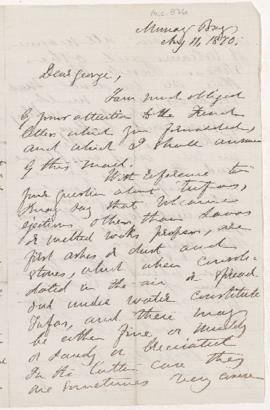 Acc. 526
Murray Bay
Aug 11, 1870.
Dear George,
I am much obliged
by your attention to the French
letter which you forwarded,
and which I shall answer
by this mail.
With reference to
your question about tufas,
I may say that volcanic
ejections other than lavas
or melted rocks proper, are
first ashes or dust and
stones, which when consoli-
dated in the air or spread
out under water constitute
Tufas, and these may
be either fine or muddy
or sandy or brecciated
In the latter case they
are sometimes very coarse